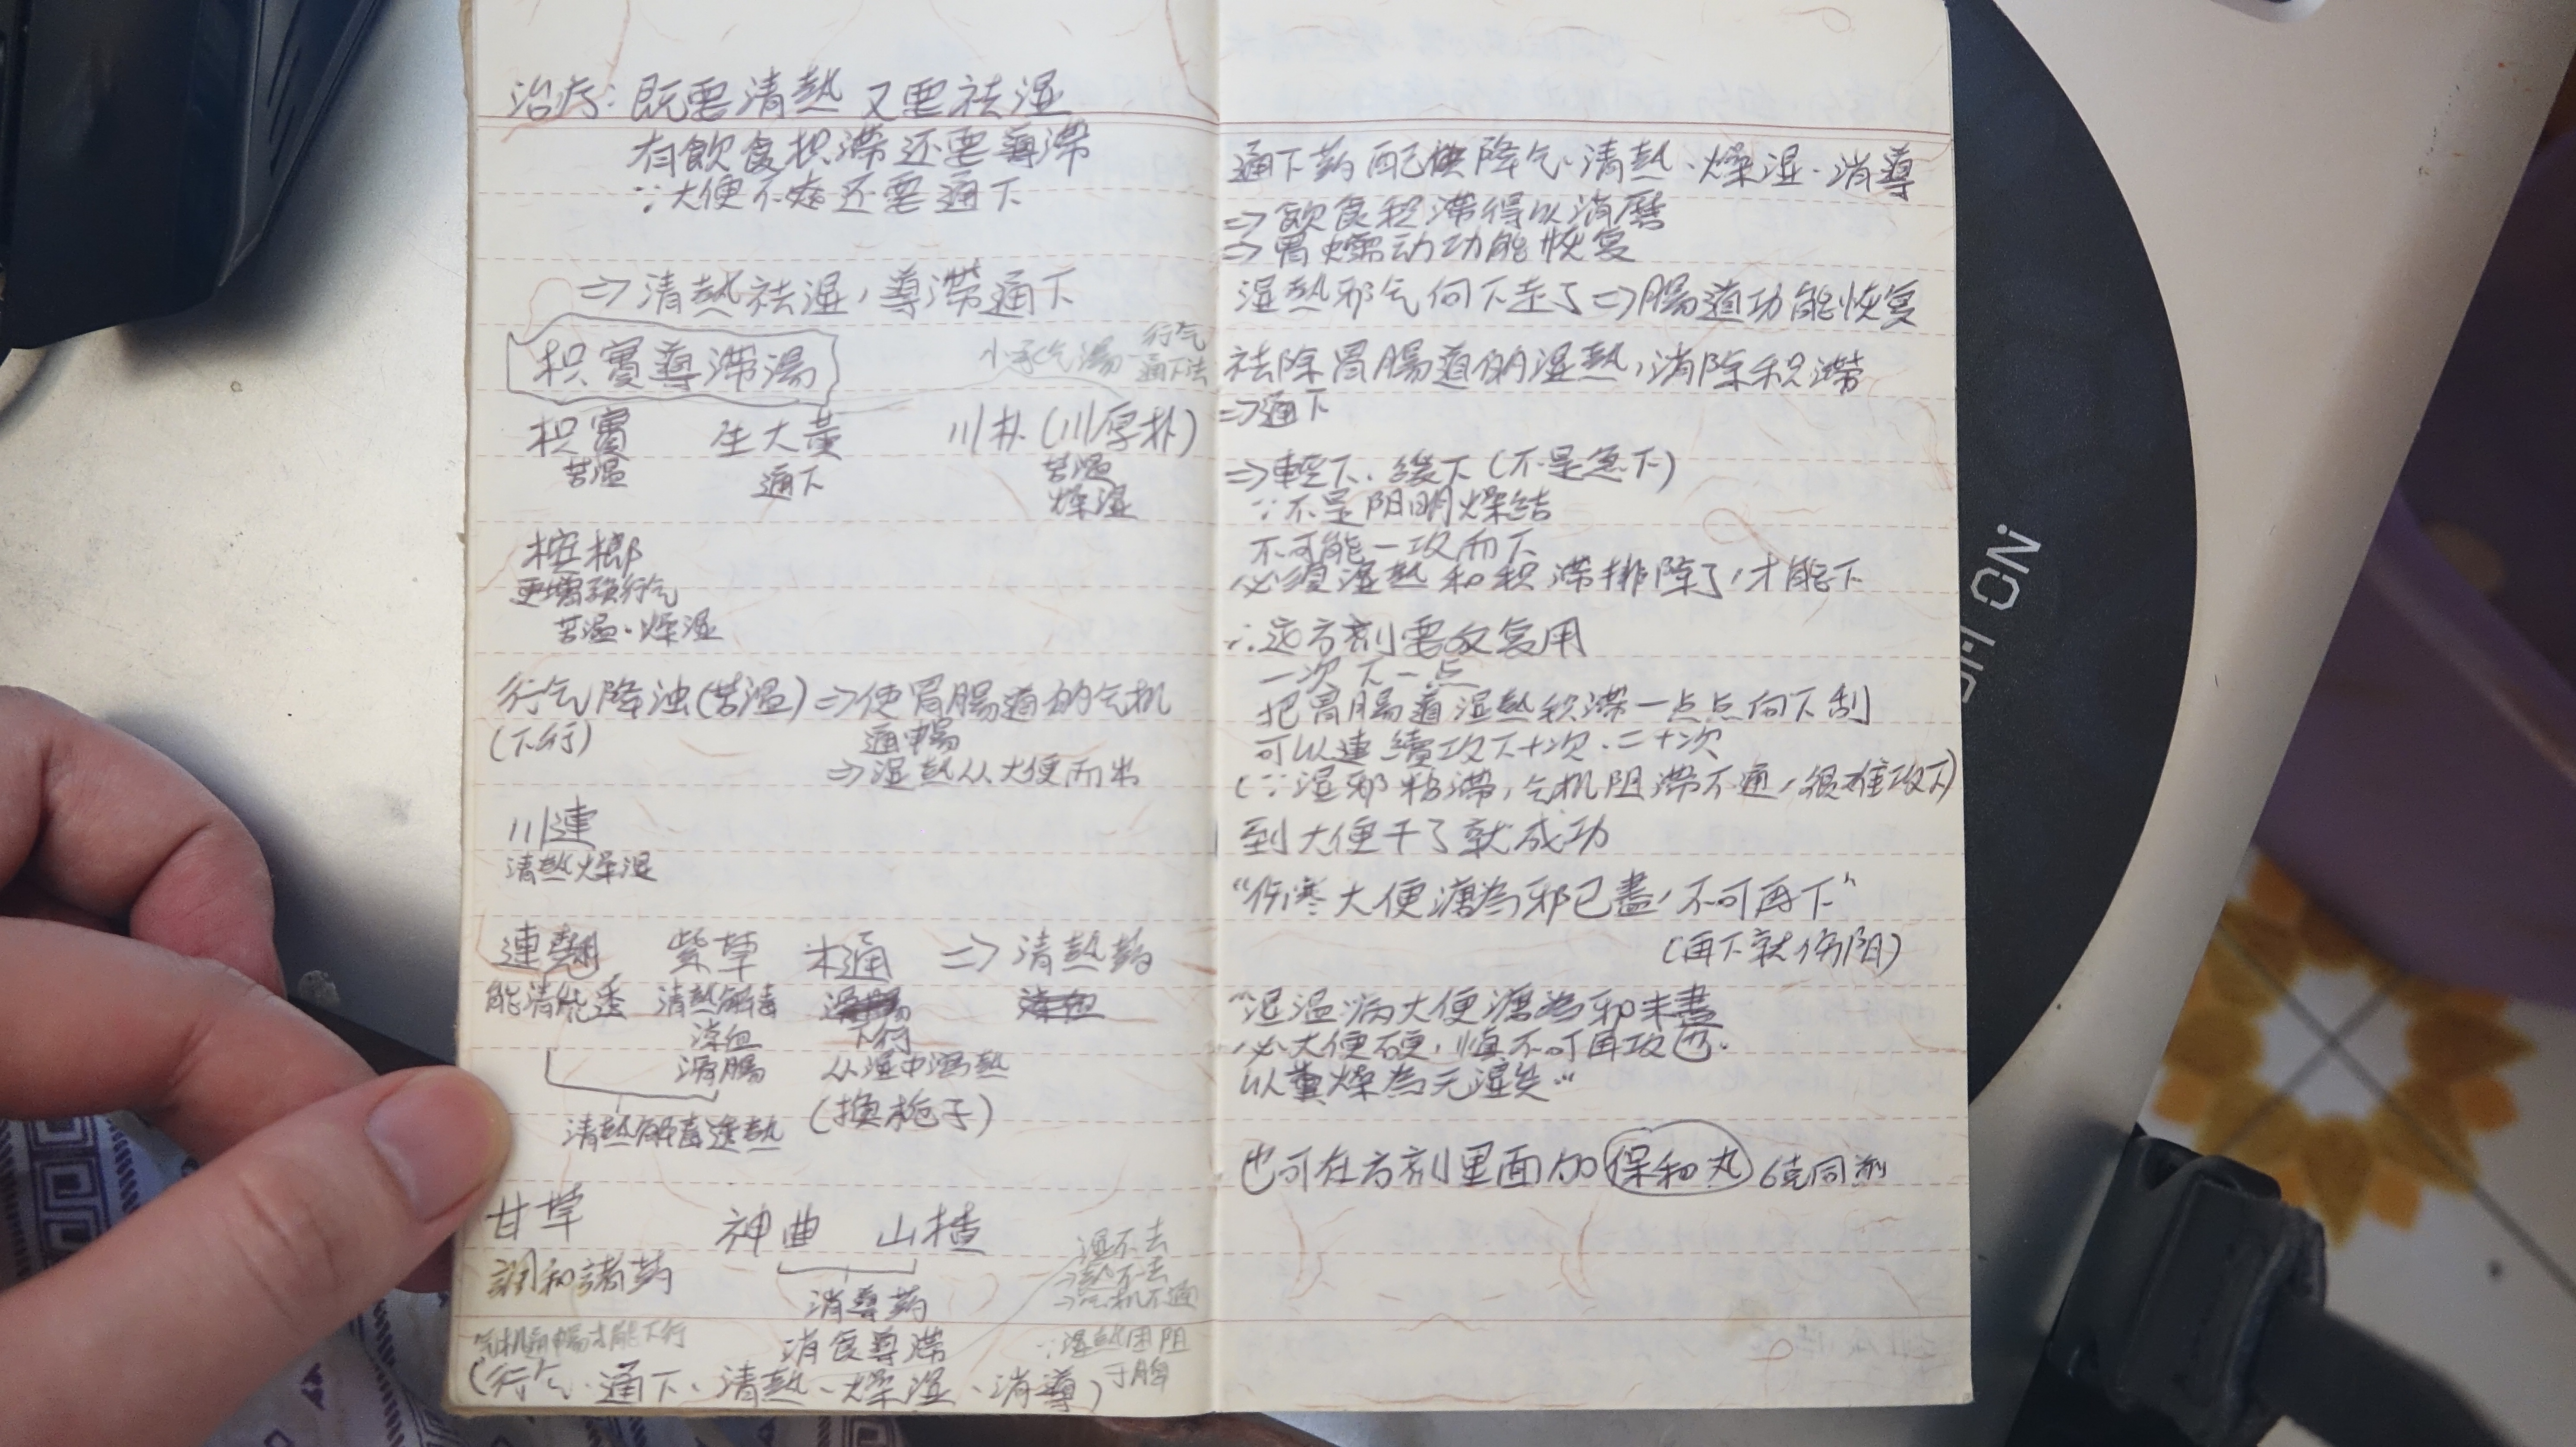 治疗：既要清熱 又要祛湿
有飲食积滞还要導滞
∵大便不爽还要通下
⇒清熱祛湿，導滞通下
枳實導滞湯
小承气湯－行气通下法
枳實 生大黃 川朴（川厚朴）
苦温 通下 苦温
燥湿
槟榔
更增强行气
苦温·燥湿
行气降浊（苦温）⇒使胃腸道的气机
（下行） 通暢
⇒湿熱从大便而出
川連
清熱燥湿
連翹 紫草 木通 ⇒清熱药
能清能透 清熱解毒
涼血 下行
滑腸 从湿中泻熱
（换栀子）
清熱解毒透熱
甘草 神曲 山楂
調和諸药
消導药
消食導滞
湿不去
⇒熱不去
⇒气机不通
∵湿熱困阻
于腸
气机通暢才能下行
（行气·通下、清熱、燥湿、消導）
通下药配供降气·清熱·燥湿·消導
⇒飲食积滞得以消磨
⇒胃蠕动功能恢复
湿熱邪气向下走了⇒腸道功能恢复
祛除胃腸道的湿熱，消除积滞
⇒通下
⇒輕下、缓下（不是急下）
∵不是阳明燥结
不可能一攻而下
必须湿熱和积滞排除了，才能下
∴这方剂要反复用
一次下一点
把胃腸道湿熱积滞一点点向下刮
可以連續攻下十次·二十次
（∵湿邪粘滞，气机阻滞不通，很难攻下）
到大便干了就成功
“伤寒大便溏為邪已盡，不可再下”
（再下就伤阳）
“湿温病大便溏為邪未盡
必大便硬，慎不可再攻也.
以糞燥為无湿矣”
也可在方剂里面加保和丸 6克同煎
SM ON